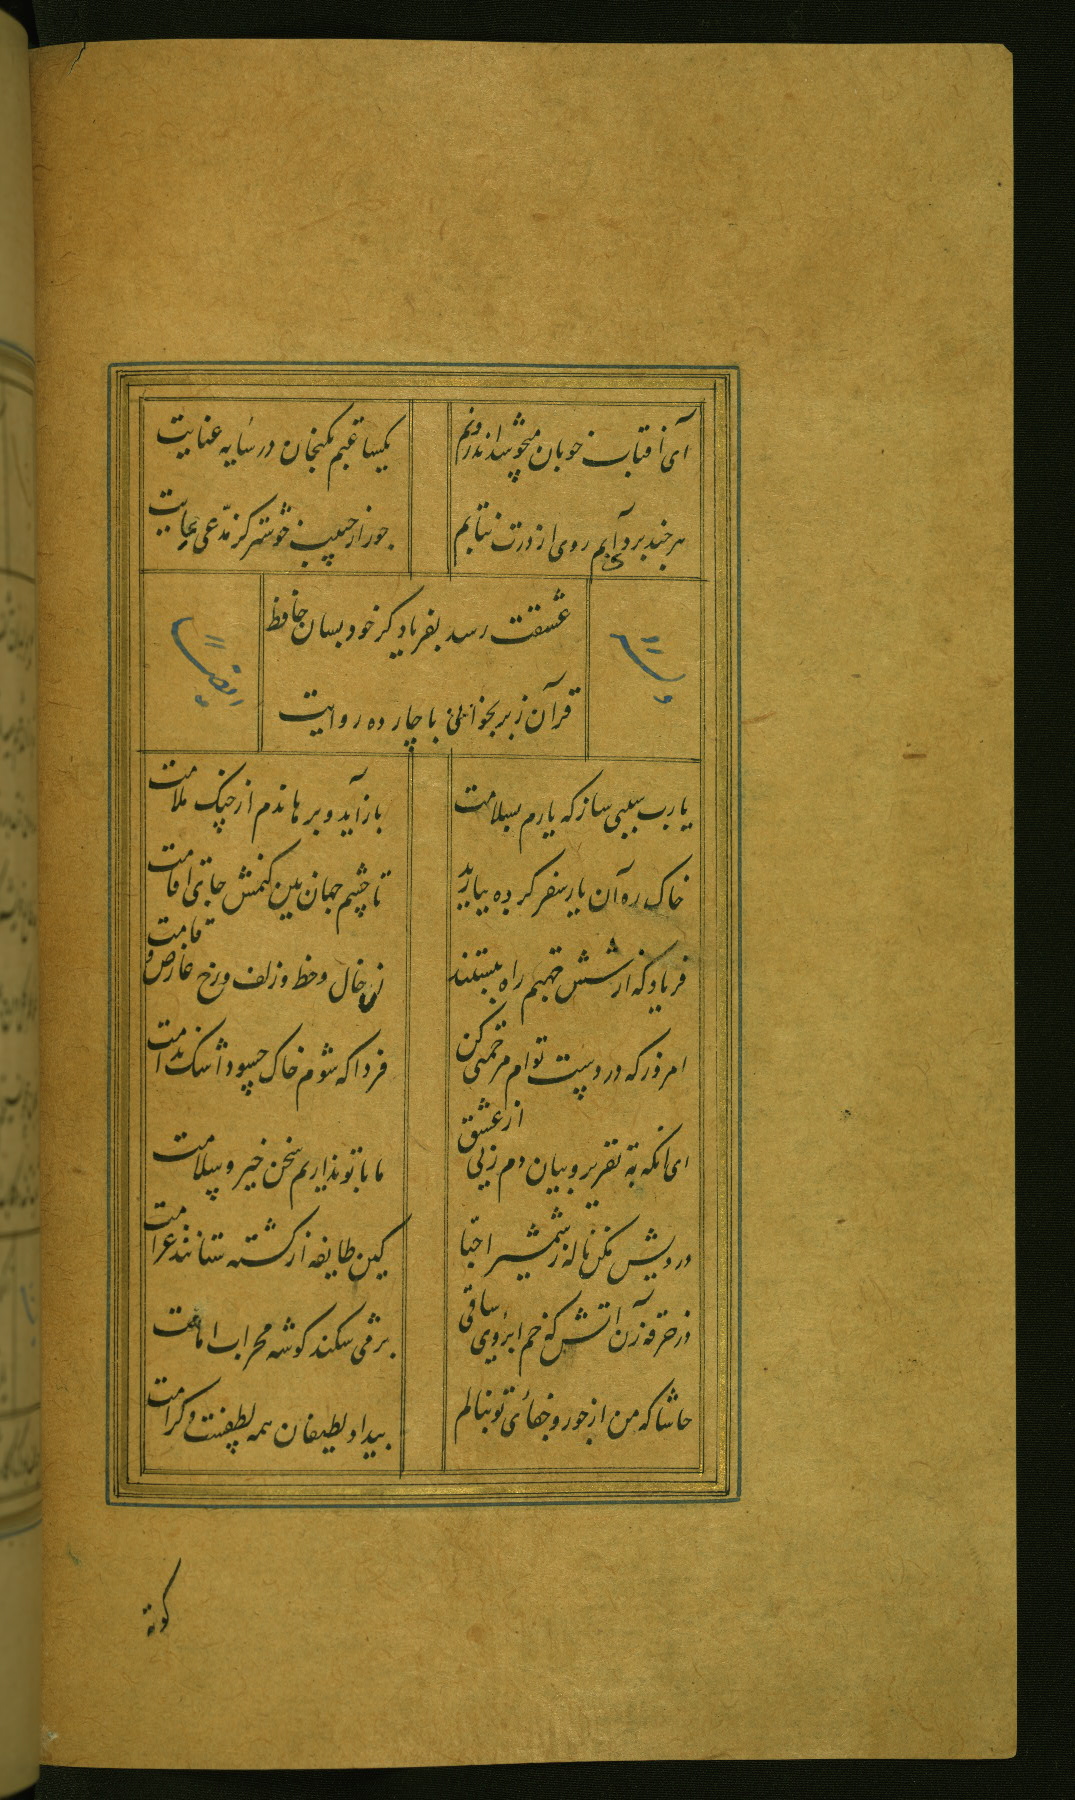 ای آفتاب خوبان میجوشد اندرونم
یکساعتم بکنجان در سایه عنایت
هر چند بردی آبم روی از درت نتابم
جور از حبیب خوشتر کز مدّعی رعایت
عشقت رسد بفریاد کر خود بسان حافظ
قرآن ز بر بخوانی با چارده روایت
وله
ایضاً
یا رب سببی ساز که یارم بسلامت
باز آید و برهاندم از چنک ملامت
خاک ره آن یار سفر کرده بیارید
تا چشم جهان بین کنمش جای اقامت
فریاد که از شش جهتم راه ببستند
آن خال و خط و زلف و رخ عارض و قامت
امروز که در دست توام مرحمتی کن
فردا که شوم خاک چسود اشک ندامت
ای آنکه به تقریر و بیان دم زنی از عشق
ما با تو نداریم سخن خیر و سلامت
درویش مکن ناله ز شمشیر احبّا
کین طایفه از کشته ستانند غرامت
در خرقه زن آتش که خم ابروی ساقی
بر می شکند کوشه محراب امامت
حاشا که من از جور و جفای تو بنالم
بیداد لطیفان همه لطفست و کرامت
کوته